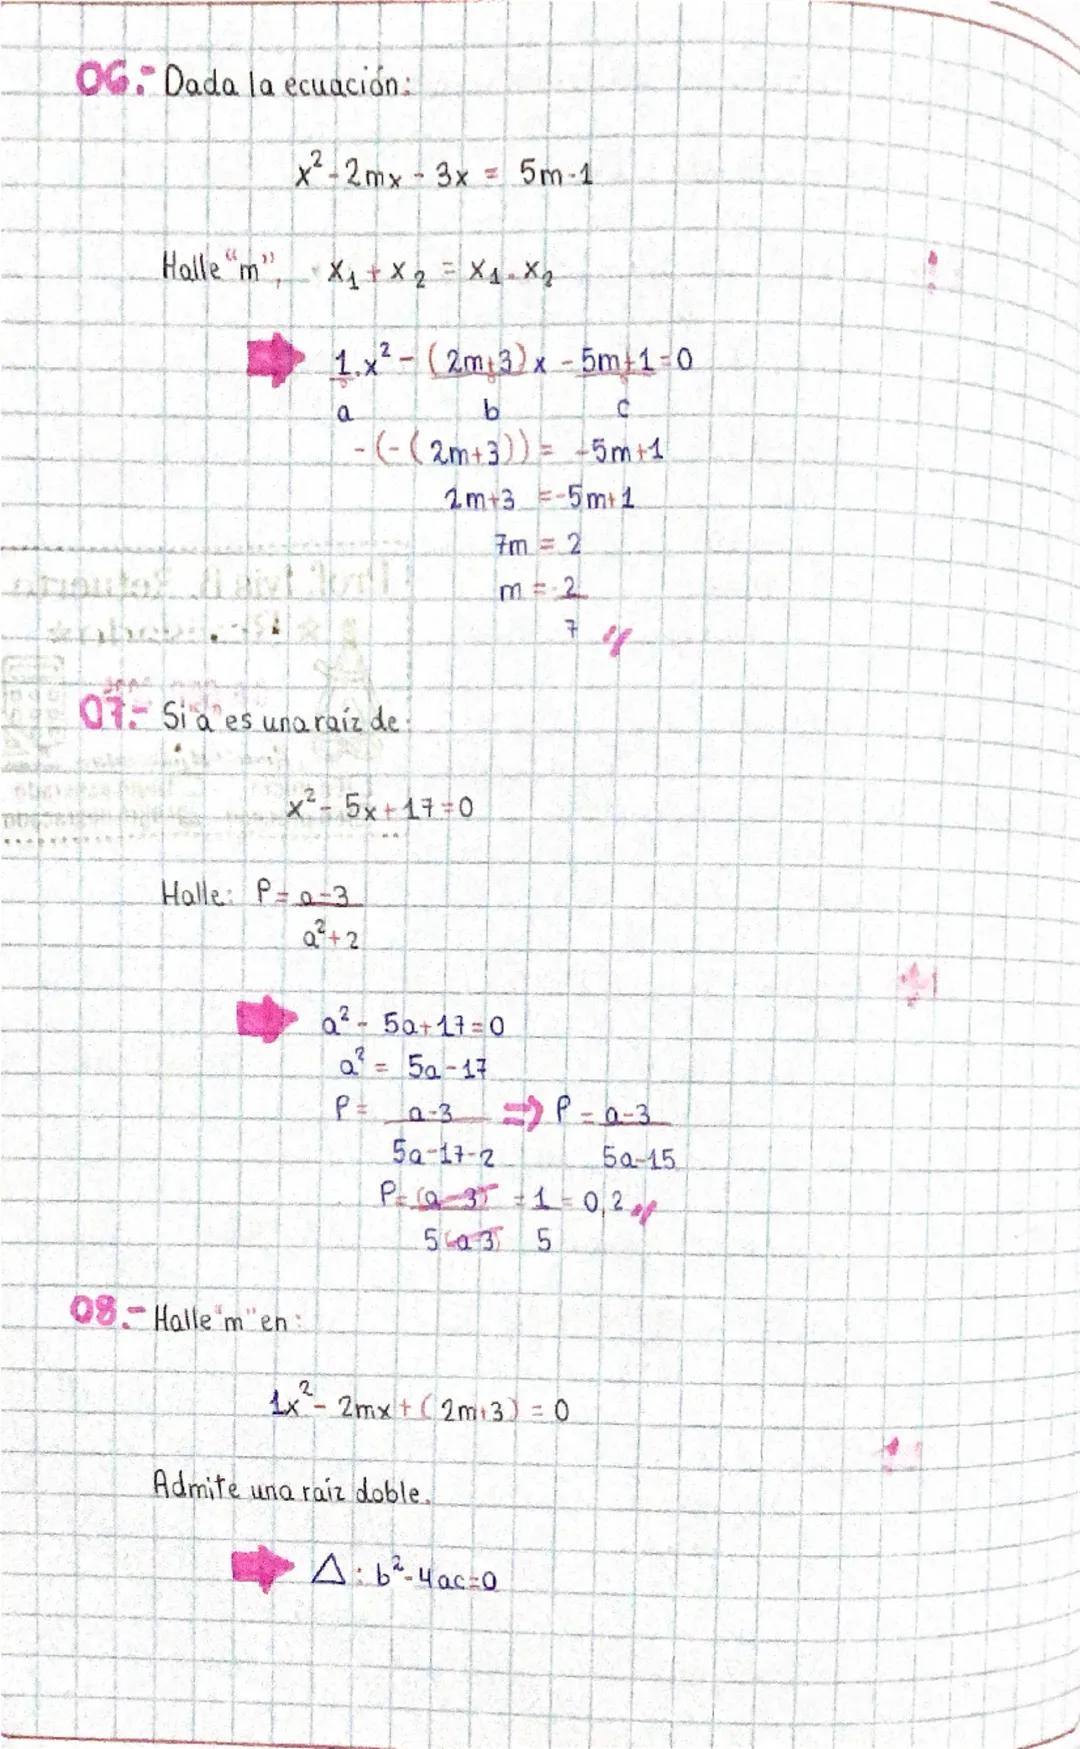 06.- Dada la ecuación:
x² - 2mx - 3x = 5m - 1
Halle "m", x₁ + x₂ = x₁ . x₂
1.x² - (2m+3)x - 5m+1=0
a b c
-(-(2m+3)) = -5m+1
2m+3 = -5m+1
7m = 2
m = -2
7
07.- Si "a" es una raíz de:
x² - 5x + 17 = 0
Halle: P = a-3
a²+2
a² - 5a+17=0
a² = 5a-17
P = a-3 ⇒ P = a-3
5a-17-2 5a-15
P = (a-3) = 1 = 0,2
5(a-3) 5
08.- Halle "m" en:
1x² - 2mx + (2m+3) = 0
Admite una raíz doble.
Δ: b²-4ac=0